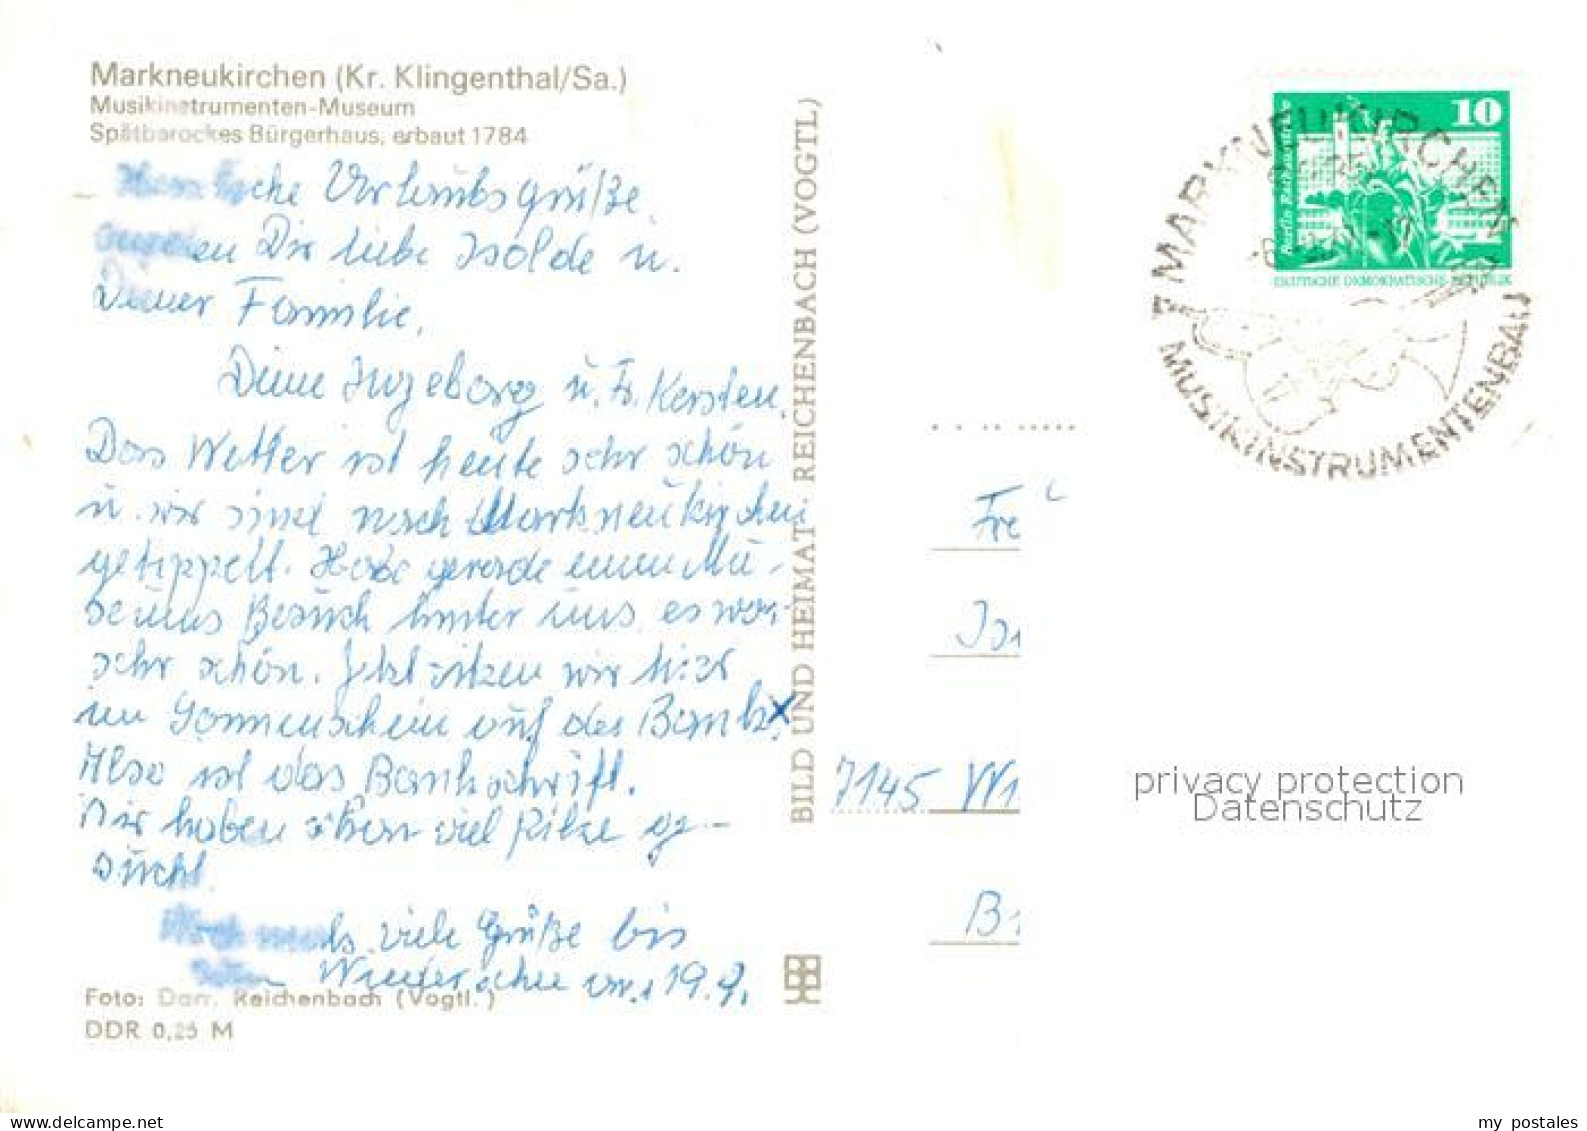 Markneukirchen (Kr. Klingenthal/Sa.)
Musikinstrumenten-Museum
Spätbarockes Bürgerhaus, erbaut 1784
Herzliche Urlaubsgrüße
Dir liebe Isolde u.
Deiner Familie.
Deine Ingeborg u. Fr. Kersten.
Das Wetter ist heute sehr schön
u. wir sind nach Markneukirchen
getippelt. Habe gerade einen Mu-
seums Besuch hinter uns, es war
sehr schön. Jetzt sitzen wir hier
im Sonnenschein auf der Bank x
Also ist das Bankschrift.
Wir haben schon viel Pilze ge-
sucht.
Nochmals viele Grüße bis
zum Wiedersehen am 19.9.
Foto: Darr, Reichenbach (Vogtl.)
DDR 0,25 M
BILD UND HEIMAT REICHENBACH (VOGTL)
10
Berlin Rathausstraße
DEUTSCHE DEMOKRATISCHE REPUBLIK
MARKNEUKIRCHEN
MUSIKINSTRUMENTENBAU
Fre
Is
7145 Wi
B
privacy protection
Datenschutz
my postales